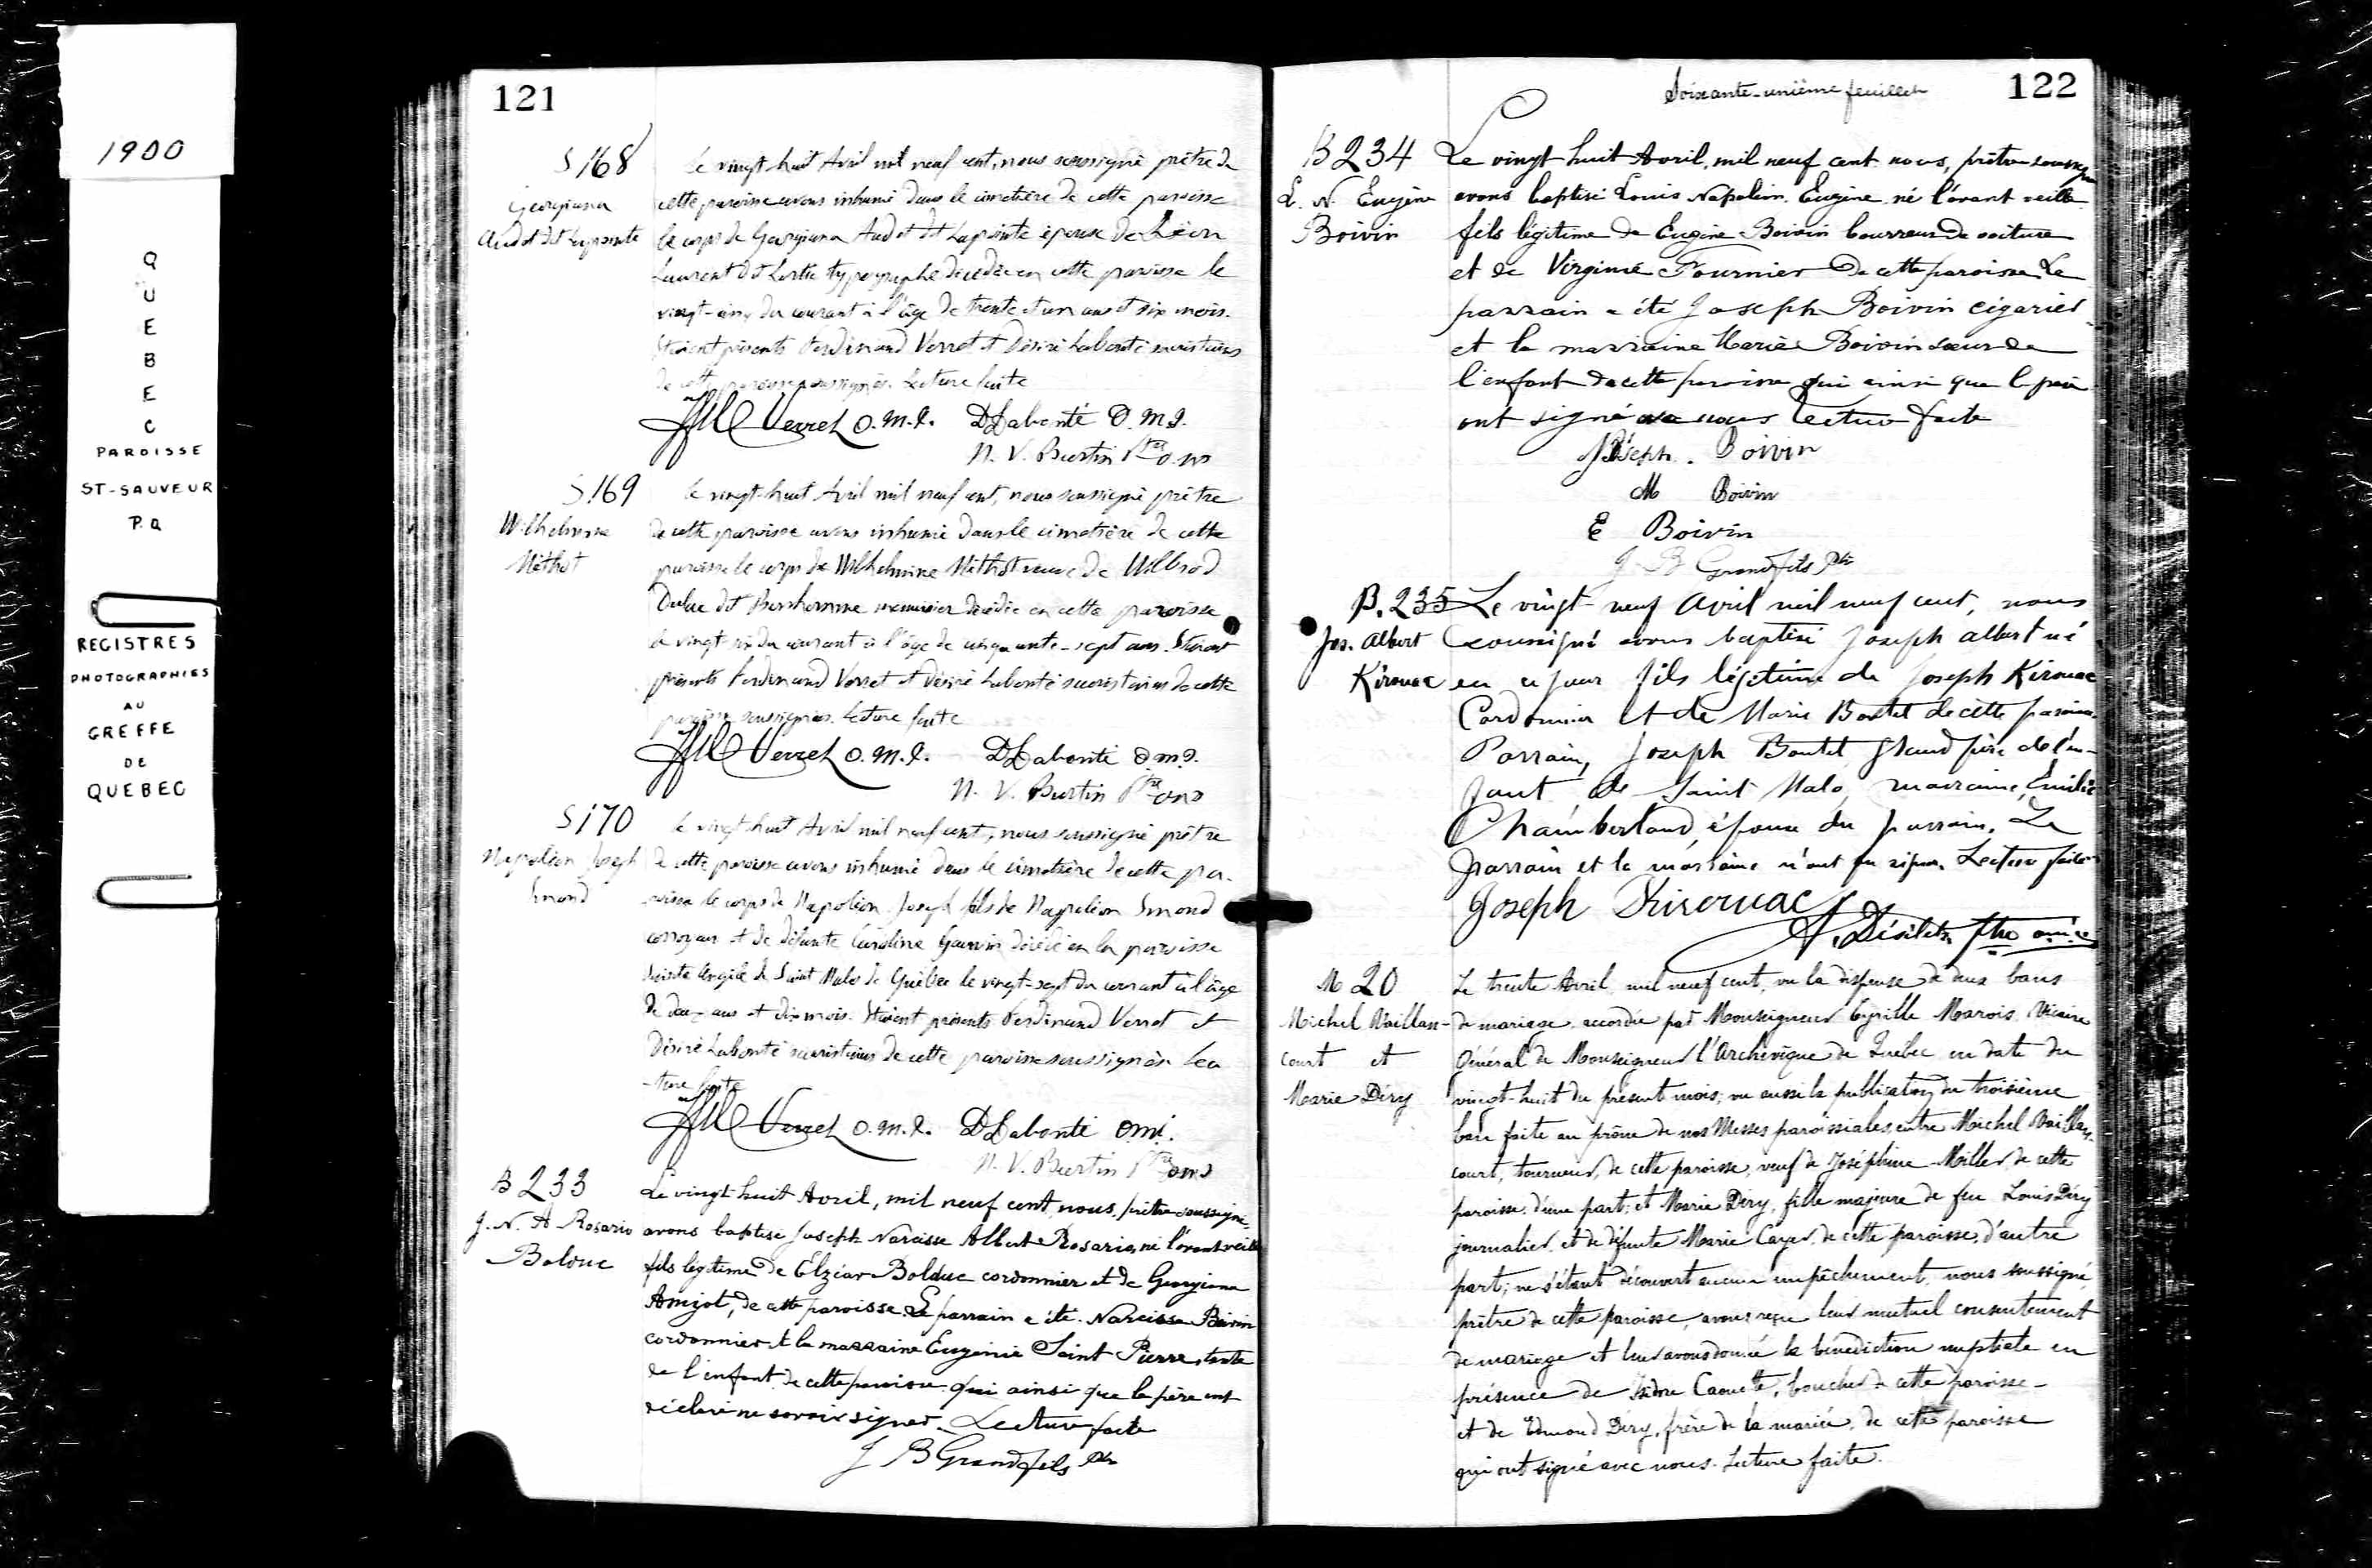 1900
QUEBEC
PAROISSE
ST-SAUVEUR
P.Q
REGISTRES
PHOTOGRAPHIES
AU
GREFFE
DE
QUEBEC
121
S 168
Georgiana
Audet dit Lapointe
Le vingt-huit Avril mil neuf cent, nous soussigné prêtre de
cette paroisse avons inhumé dans le cimetière de cette paroisse
le corps de Georgiana Audet dit Lapointe épouse de Léon
Laurent dit Lortie typographe décédée en cette paroisse le
vingt-cinq du courant à l'âge de trente et un ans et six mois.
Etaient présents Ferdinand Verret et Désiré Labonté sacristains
de cette paroisse soussignés. Lecture faite
Verret O.M.I. D Labonté O.M.I.
N. V. Burtin Ptre O.M.I
S 169
Wilhelmine
Méthot
Le vingt-huit Avril mil neuf cent, nous soussigné prêtre
de cette paroisse avons inhumé dans le cimetière de cette
paroisse le corps de Wilhelmine Méthot veuve de Wilbrod
Dulac dit Bonhomme menuisier décédée en cette paroisse
le vingt-six du courant à l'âge de cinquante-sept ans. Etaient
présents Ferdinand Verret et Désiré Labonté sacristains de cette
paroisse soussignés. Lecture faite
Verret O.M.I. D Labonté O.M.I.
N. V. Burtin Ptre O.M.I
S 170
Napoléon Joseph
Emond
Le vingt-huit Avril mil neuf cent, nous soussigné prêtre
de cette paroisse avons inhumé dans le cimetière de cette pa-
roisse le corps de Napoléon Joseph fils de Napoléon Emond
corroyeur et de défunte Caroline Gauvin décédé en la paroisse
Sainte Angèle de Saint Malo de Québec le vingt-sept du courant à l'âge
de deux ans et dix mois. Etaient présents Ferdinand Verret et
Désiré Labonté sacristains de cette paroisse soussignés Lec
-ture faite
Verret O.M.I. D Labonté O.M.I.
N. V. Burtin Ptre O.M.I
B 233
J. N. A Rosario
Bolduc
Le vingt huit Avril, mil neuf cent, nous, prêtre soussigné,
avons baptisé Joseph Narcisse Albert Rosario, né l'avant veille
fils légitime de Elzéar Bolduc cordonnier et de Georgiana
Amyot, de cette paroisse. Le parrain a été Narcisse Boivin
cordonnier et la marraine Eugénie Saint Pierre, tante
de l'enfant de cette paroisse qui ainsi que le père ont
déclaré ne savoir signer. Lecture faite
J B Grandfils Ptre
Soixante-unième feuillet
122
B 234
L. N. Eugène
Boivin
Le vingt huit Avril, mil neuf cent nous, prêtre soussigné
avons baptisé Louis Napoléon Eugène né l'avant veille
fils légitime de Eugène Boivin bourreur de voiture
et de Virginie Fournier de cette paroisse. Le
parrain a été Joseph Boivin cigarier
et la marraine Marie Boivin soeur de
l'enfant de cette paroisse qui ainsi que le père
ont signé avec nous Lecture faite
Joseph. Boivin
M Boivin
E Boivin
J B Grandfils Ptre
B. 235
Jos. Albert
Kirouac
Le vingt-neuf Avril mil neuf cent, nous
soussigné avons baptisé Joseph Albert né
en ce jour fils légitime de Joseph Kirouac
Cordonnier et de Marie Boutet de cette paroisse.
Parrain, Joseph Boutet grand père de l'en-
fant de Saint Malo, marraine, Emilie
Chamberland, épouse du parrain. Le
parrain et la marraine n'ont pu signer. Lecture faite
Joseph Kirouac
A. Désilets ptre o.m.i.
M 20
Michel Vaillan-
court et
Marie Déry
Le trente Avril, mil neuf cent, vu la dispense de deux bans
de mariage accordée par Monseigneur Cyrille Marois, Vicaire
Général de Monseigneur l'Archevêque de Québec en date du
vingt-huit du présent mois; vu aussi la publication du troisième
ban faite au prône de nos Messes paroissiales, entre Michel Vaillan-
court, tourneur, de cette paroisse, veuf de Joséphine Miller de cette
paroisse, d'une part; et Marie Déry, fille majeure de feu Louis Déry
journalier, et de défunte Marie Cayer de cette paroisse, d'autre
part; ne s'étant découvert aucun empêchement, nous soussigné,
prêtre de cette paroisse, avons reçu leur mutuel consentement
de mariage et leur avons donné la bénédiction nuptiale en
présence de Isidore Caouette, boucher de cette paroisse
et de Edmond Déry, frère de la mariée, de cette paroisse
qui ont signé avec nous. Lecture faite.